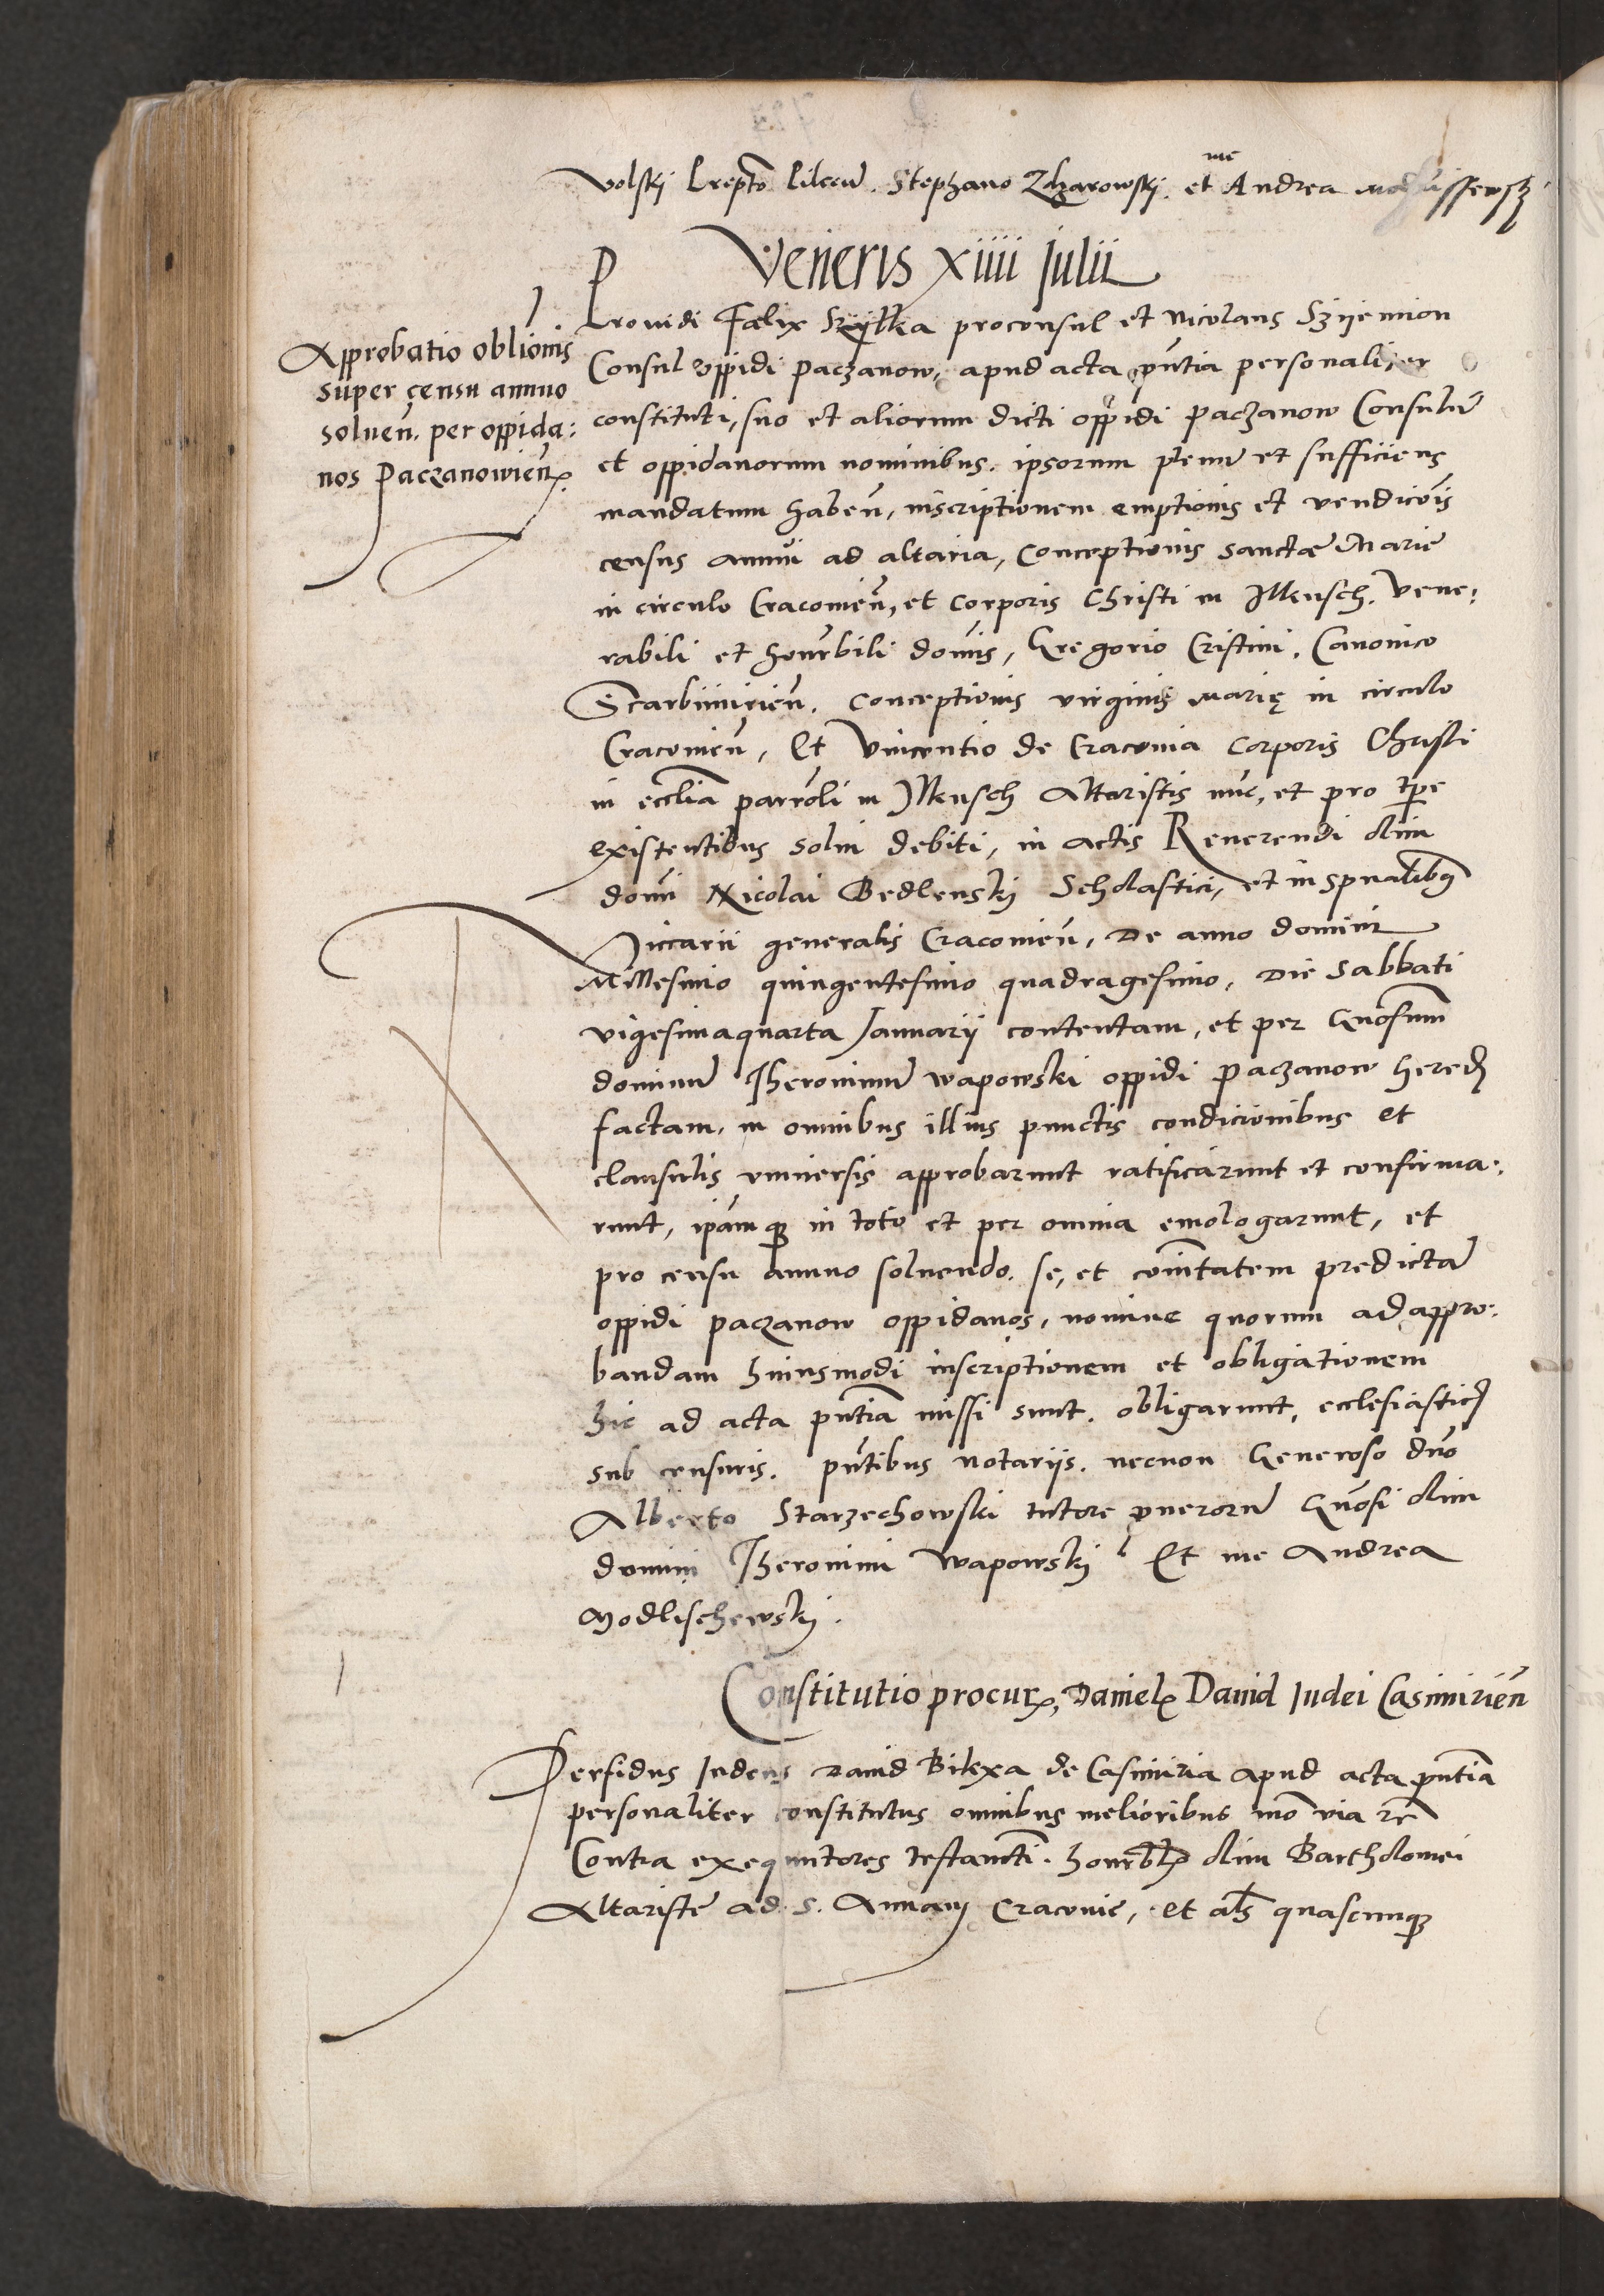 Volskj Stephano Zdzarowskj. et me Andrea
Veneris xiiii Julii
Approbatio oblionis
super censu annuo
soluen. per oppida:
nos Paczanowien.
Prouidi Fælix proconsul et Nicolaus
Consul oppidi Paczanow, apud acta pñtia personaliter
constituti, suo et aliorum dicti oppidi Paczanow Consulu͂
et oppidanorum nominibus. ipsorum plenu͂ et sufficiens
mandatum haben̄, inscriptionem emptionis et vendicõis
census annui ad altaria, Conceptionis Sanctæ Marie
in circulo Cracouien̄, et Corporis Christi in Ilkusch. Vene:
rabili et honrbili domis, Gregorio Cristini. Canonico
Scarbimirien̄. Conceptionis virginis Marię in circulo
Cracouien̄, Et Vincentio de Cracouia Corporis Christi
in ecclia parroli in Ilkusch Altaristis nu͂c, et pro tpe
existentibus solui debiti, in actis Reuerendi olim
domi Nicolai Bedlenskj Scholastici, et in spualibus
Viccarii generalis Cracouien̄, De anno domini
Millesimo quingentesimo quadragesimo, Die Sabbati
vigesimaquarta Januarij contentam, et per Gnosum
dominu͂ Iheronimu͂ Wapowski oppidi Paczanow hered
factam, in omnibus illius punctis condicionibus et
clausulis vniuersis approbarunt ratificarunt et confirma:
runt, ipamque in toto et per omnia emologarunt, et
pro censu annuo soluendo. se, et comitatem predicta͂
oppidi Paczanow oppidanos, nomine quorum ad appro:
bandam huiusmodi inscriptionem et obligationem
hic ad acta pñtia missi sunt. obligarunt, ecclesiastic
sub censuris. Pñtibus notariis. necnon Generoso dno
Alberto Starzechowski tutore pueroru͂ Gnosi olim
domini Iheronimi Wapowskj Et me Andrea
Modlischewskj.
Constitutio procur, Daniel Dauid Iudei Casimirien̄
Perfidus Iudeus Dauid Bilxa de Casimiria apud acta pñtia
personaliter constitutus omnibus melioribus mo via re
Contra exequutores testamti. honrbl olim Bartholomei
Altariste ad S. Annam Cracouie, et als quascunque